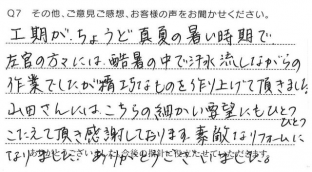 Q7 その他、ご意見ご感想、お客様の声をお聞かせください。
工期がちょうど真夏の暑い時期で
左官の方々には、酷暑の中で汗水流しながらの
作業でしたが精巧なものを作り上げて頂きました。
山田さんには、こちらの細かい要望にもひとつひとつ
こたえて頂き感謝しております。素敵なリフォームに
なりました。ありがとうございました。